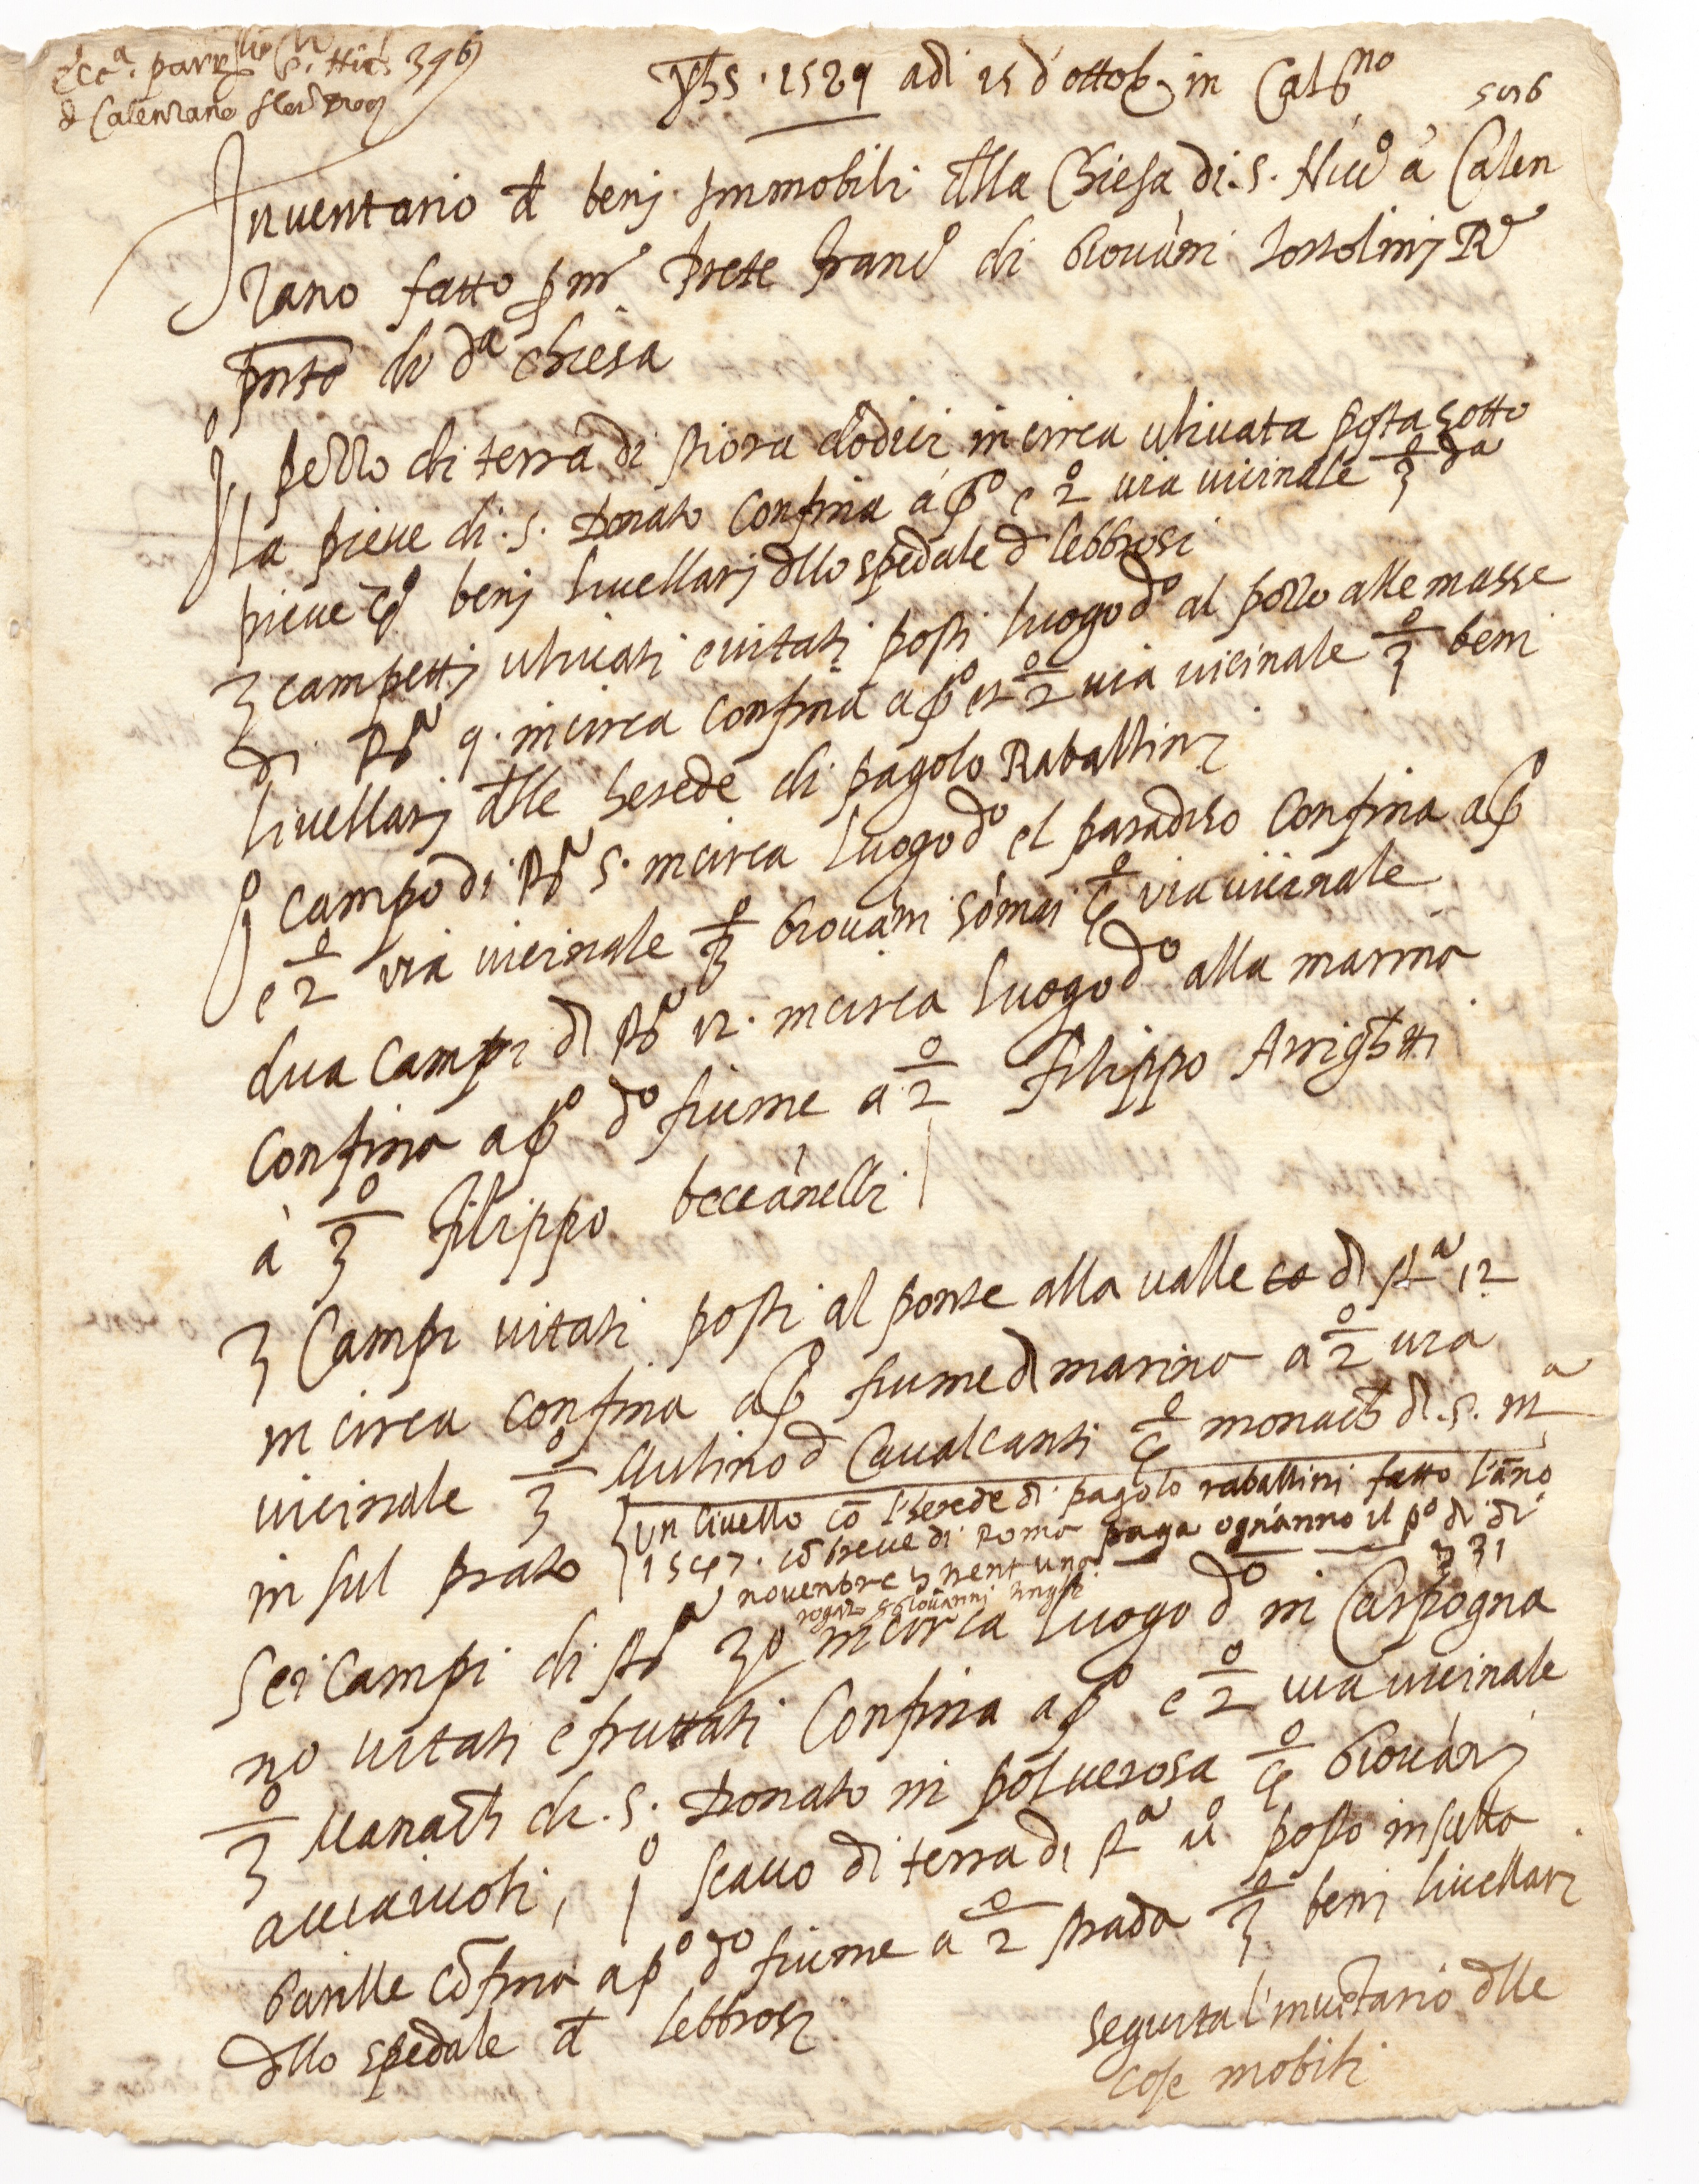 Ecc.ª parr.lis S.ti Nic.i 396
d Calenzano flor. Dioc.
Yhs · 1589 adi 15 d'ottob. in Cal.no
Inventario d benj immobili dlla Chiesa di . S . Nic.o à Calen
zano fatto p me Prete Franc.o di Giovāni Tortolinj R.e
pnte di d.a Chiesa
j.o pezzo di terra di stiora dodici in circa ulivata posta sotto
la pieve di . S . Donato confina à p.o e 2.o via vicinale 3.o d.a
pieve 4.o benj livellarj dllo spedale d lebbrosi
3 campettj ulivati e vitati posti luogo d.o al pozzo alle masse
di st.a 9 . incirca confina a p.o et 2.o via vicinale 3.o beni
livellarj dlle herede di pagolo Raballinj
j.o campo di st.a 5 . incirca luogo d.o el paradiso confina a p.o
e 2.o via vicinale 3.o Giovāni Sōmai 4.o via vicinale
dua campi di st.a 12 . incirca luogo d.o alla marina
confina a p.o d.o fiume a 2.o Filippo Arrighetti
à 3.o Filippo beccanelli
3 Campi vitati posti al ponte alla valle di st.a 12
in circa confina a p.o fiume d marina a 2.o via
vicinale 3.o Mulino d Cavalcanti 4.o monach. di . S . M.a
in sul prato
un livello cō l'herede di pagolo raballini fatto l'āno
1547 . cō breve di Roma paga ogn'anno il p.o di di
novembre ▽ trent'una ▽ 31
rogato s Giovanni
Sei campi di st.a 30 incirca luogo d.o in Carpogna
no vitati e fruttati Confina a p.o e 2.o via vicinale
3.o Monach. di . S . Donato in polverosa 4.o Giovānj
acciaiuoli, j.o scavo di terra di st.a posto in sulla
Garille cōfina a p.o d.o fiume a 2.o strada 3.o beni livellari
dllo spedale d lebbrosi
seguita l'invētario dlle
cose mobili